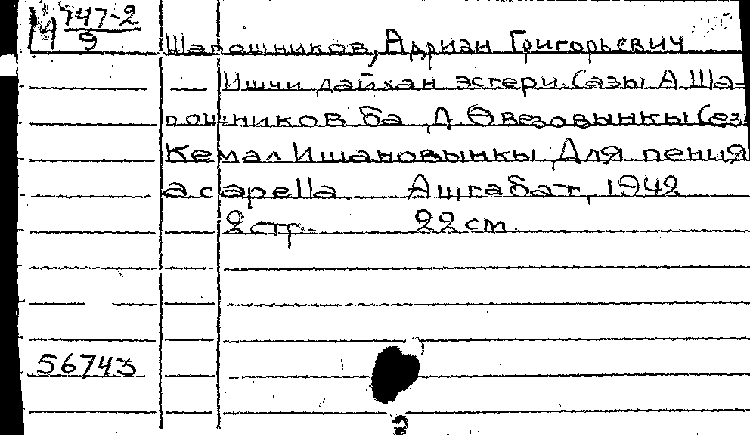 М 747-2
9
Шапошников, Адриан Григорьевич
Ишчи дайхан эсгери. Сазы А. Ша-
пошников ба Д. Өвезовынкы (сөзи
Кемал Ишановынкы Для пения
a capella Ашгабат, 1942
2 стр. 22 см.
56743